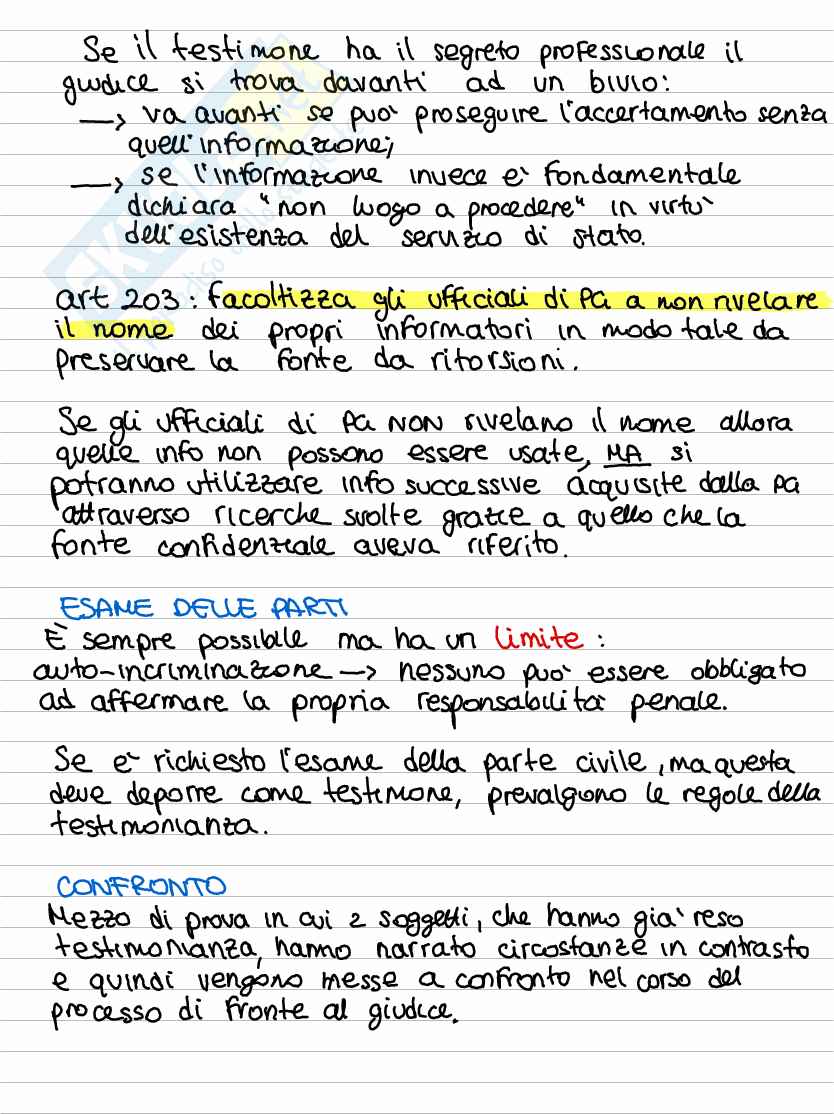 Se il testimone ha il segreto professionale il
giudice si trova davanti ad un bivio:
→ va avanti se può proseguire l'accertamento senza
quell'informazione;
→ se l'informazione invece è fondamentale
dichiara "non luogo a procedere" in virtù
dell'esistenza del servizio di stato.
art 203: facoltizza gli ufficiali di PG a non rivelare
il nome dei propri informatori in modo tale da
preservare la fonte da ritorsioni.
Se gli ufficiali di PG NON rivelano il nome allora
quelle info non possono essere usate, MA si
potranno utilizzare info successive acquisite dalla PG
attraverso ricerche svolte grazie a quello che la
fonte confidenziale aveva riferito.
ESAME DELLE PARTI
È sempre possibile ma ha un limite:
auto-incriminazione → nessuno può essere obbligato
ad affermare la propria responsabilità penale.
Se è richiesto l'esame della parte civile, ma questa
deve deporre come testimone, prevalgono le regole della
testimonianza.
CONFRONTO
Mezzo di prova in cui 2 soggetti, che hanno già reso
testimonianza, hanno narrato circostanze in contrasto
e quindi vengono messe a confronto nel corso del
processo di fronte al giudice.